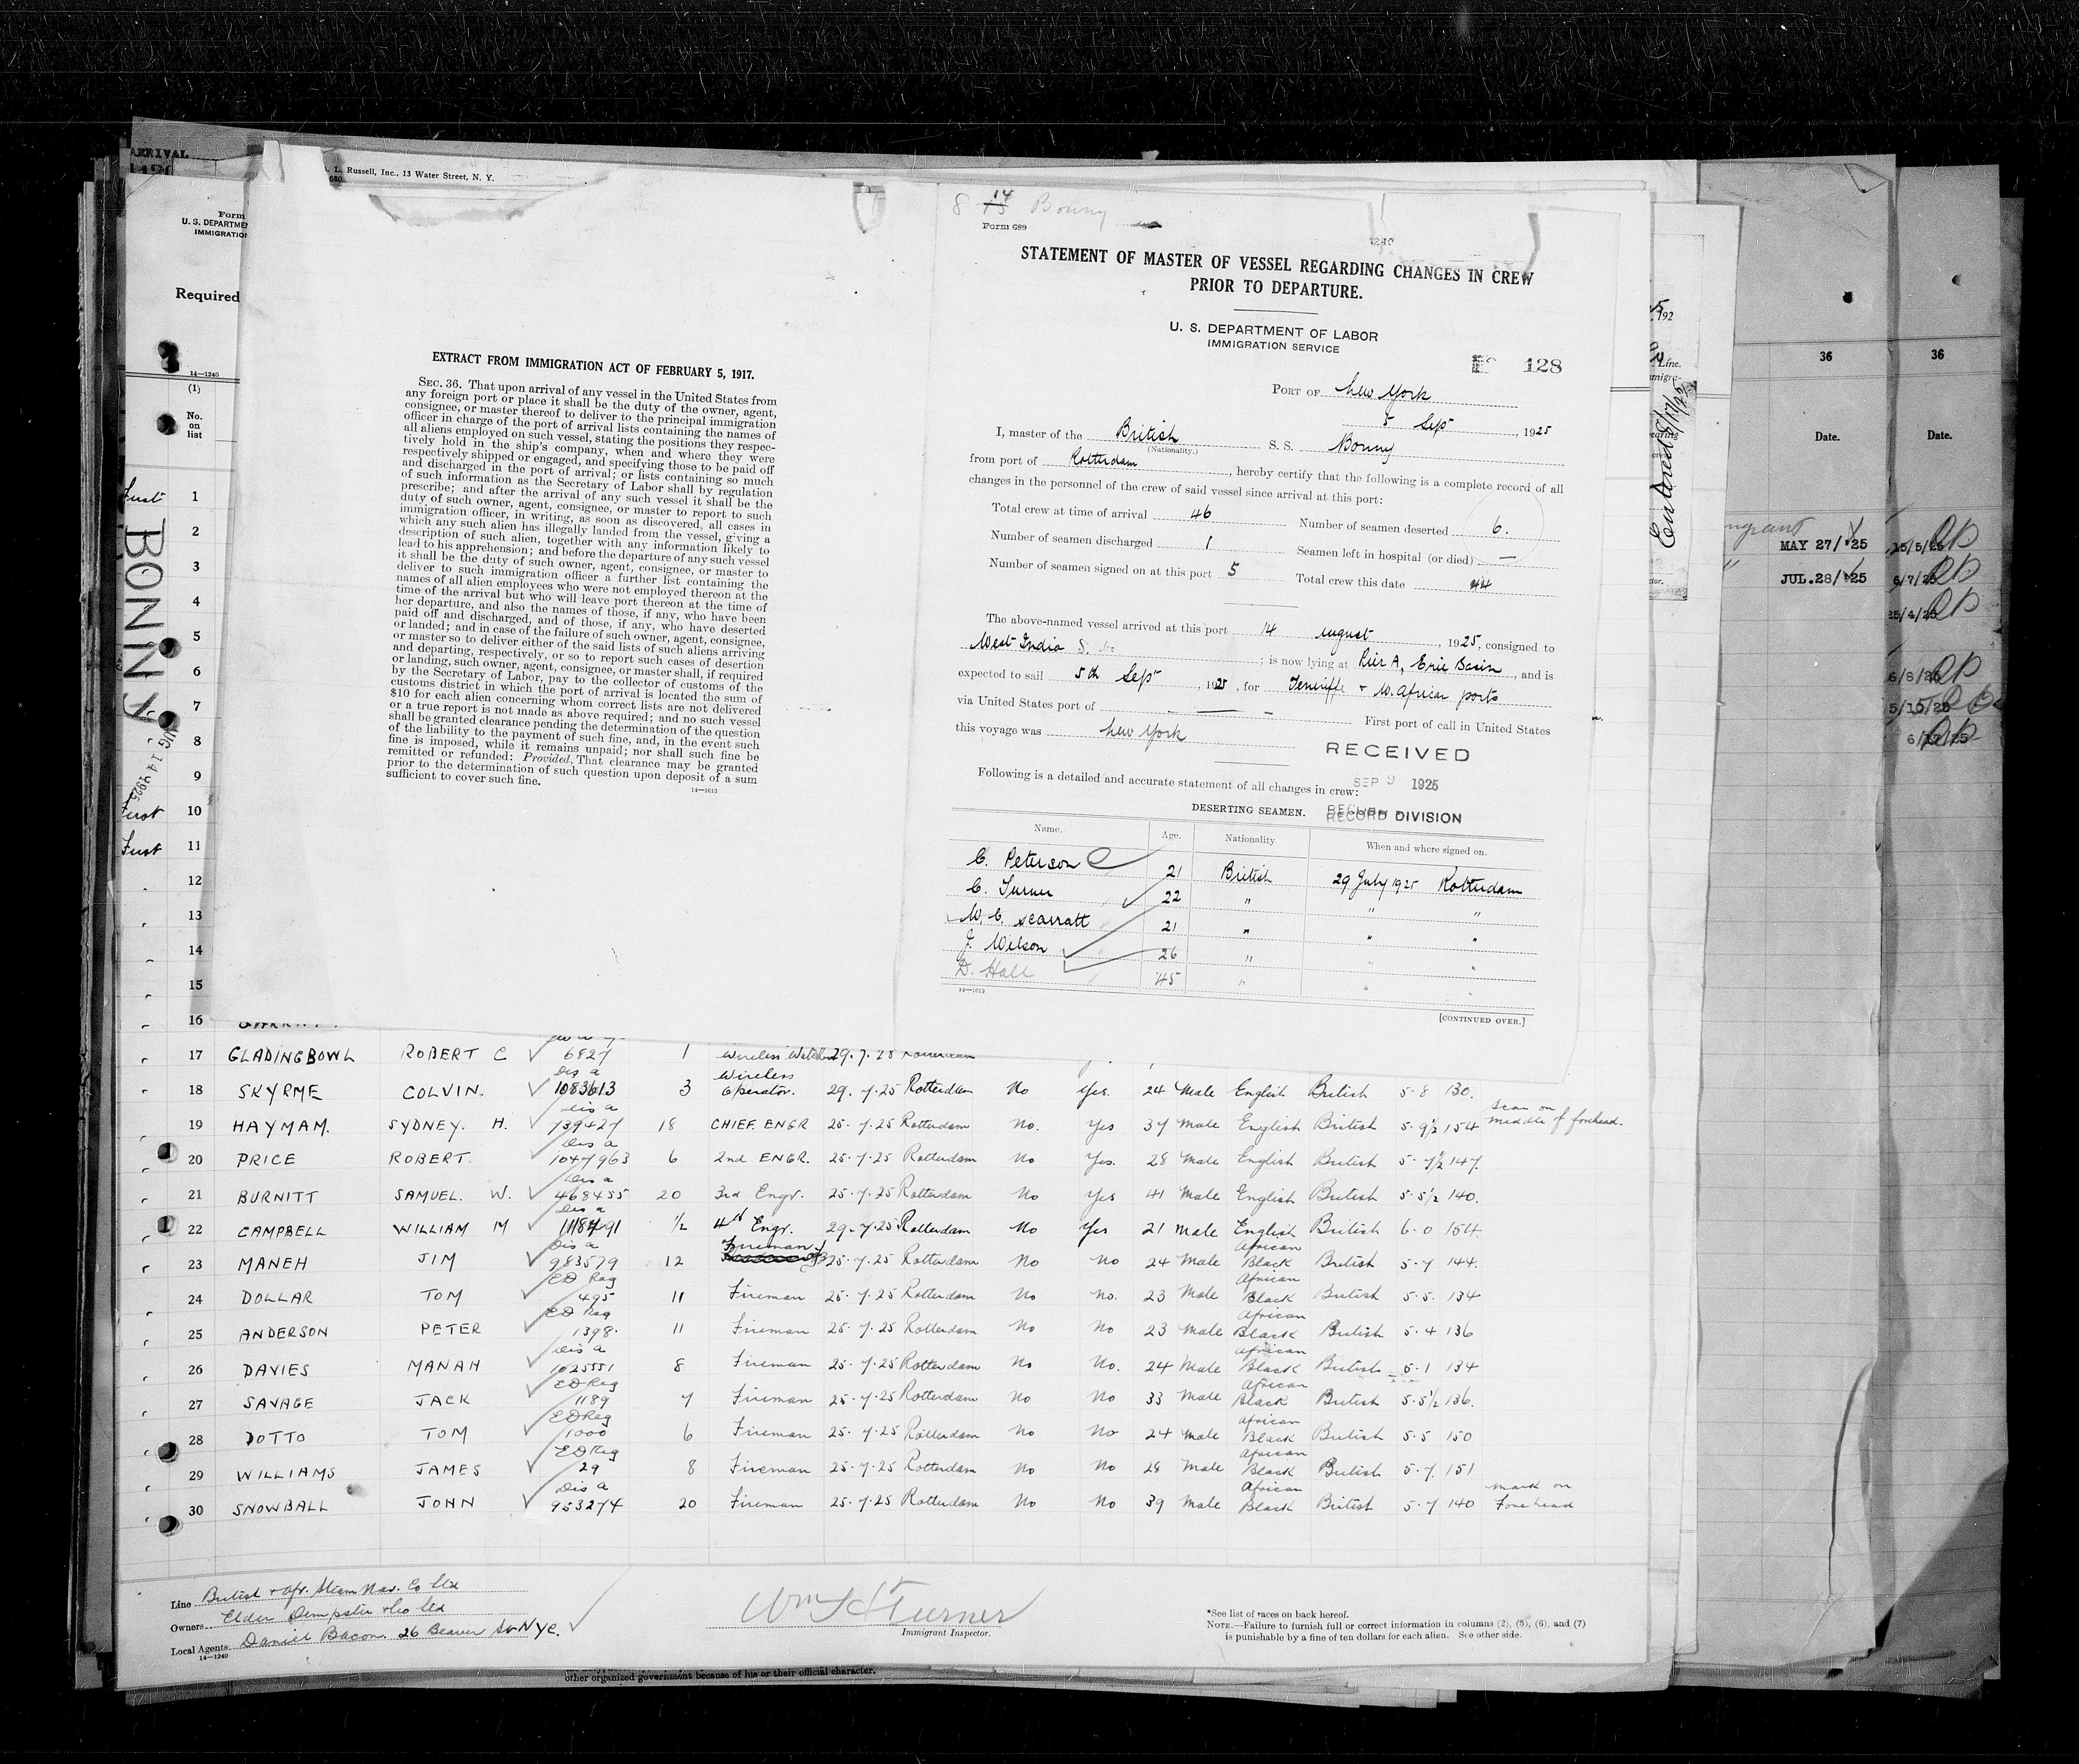 ARRIVAL
L. Russell, Inc., 13 Water Street, N. Y.
680
Form
U. S. DEPARTME
IMMIGRATIO
Required
14—1240
(1)
No.
on
list
First 1
2
3
4
5
6
7
8
9
First 10
First 11
12
13
14
15
16
BONNY
AUG 14 1925
EXTRACT FROM IMMIGRATION ACT OF FEBRUARY 5, 1917.
SEC. 36. That upon arrival of any vessel in the United States from
any foreign port or place it shall be the duty of the owner, agent,
consignee, or master thereof to deliver to the principal immigration
officer in charge of the port of arrival lists containing the names of
all aliens employed on such vessel, stating the positions they respec-
tively hold in the ship's company, when and where they were
respectively shipped or engaged, and specifying those to be paid off
and discharged in the port of arrival; or lists containing so much
of such information as the Secretary of Labor shall by regulation
prescribe; and after the arrival of any such vessel it shall be the
duty of such owner, agent, consignee, or master to report to such
immigration officer, in writing, as soon as discovered, all cases in
which any such alien has illegally landed from the vessel, giving a
description of such alien, together with any information likely to
lead to his apprehension; and before the departure of any such vessel
it shall be the duty of such owner, agent, consignee, or master to
deliver to such immigration officer a further list containing the
names of all alien employees who were not employed thereon at the
time of the arrival but who will leave port thereon at the time of
her departure, and also the names of those, if any, who have been
paid off and discharged, and of those, if any, who have deserted
or landed; and in case of the failure of such owner, agent, consignee,
or master so to deliver either of the said lists of such aliens arriving
and departing, respectively, or so to report such cases of desertion
or landing, such owner, agent, consignee, or master shall, if required
by the Secretary of Labor, pay to the collector of customs of the
customs district in which the port of arrival is located the sum of
$10 for each alien concerning whom correct lists are not delivered
or a true report is not made as above required; and no such vessel
shall be granted clearance pending the determination of the question
of the liability to the payment of such fine, and, in the event such
fine is imposed, while it remains unpaid; nor shall such fine be
remitted or refunded: Provided, That clearance may be granted
prior to the determination of such question upon deposit of a sum
sufficient to cover such fine.
14—1613
8 14 Bonny
Form 689
STATEMENT OF MASTER OF VESSEL REGARDING CHANGES IN CREW
PRIOR TO DEPARTURE.
U. S. DEPARTMENT OF LABOR
IMMIGRATION SERVICE
128
PORT OF New York
5 Sep, 1925
I, master of the British S. S. Bonny
(Nationality.)
from port of Rotterdam, hereby certify that the following is a complete record of all
changes in the personnel of the crew of said vessel since arrival at this port:
Total crew at time of arrival 46 Number of seamen deserted 6.
Number of seamen discharged 1 Seamen left in hospital (or died) —
Number of seamen signed on at this port 5 Total crew this date 44
The above-named vessel arrived at this port 14 August, 1925, consigned to
West India S. Co; is now lying at Pier A, Erie Basin, and is
expected to sail 5th Sep, 1925, for Teneriffe + W. African ports
via United States port of — First port of call in United States
this voyage was New York
RECEIVED
SEP 9 1925
RECORD DIVISION
Following is a detailed and accurate statement of all changes in crew:
DESERTING SEAMEN.
Name. Age. Nationality When and where signed on.
C. Peterson 21 British 29 July 1925 Rotterdam
C. Turner 22 " " "
W. C. Scarratt 21 " " "
J. Wilson 26 " " "
D. Hall 45 " " "
14—1613
[CONTINUED OVER.]
17 GLADINGBOWL ROBERT C 6827 1 Wireless Watcher 29.7.25 Rotterdam
18 SKYRME COLVIN. Dis a 1083613 3 Wireless Operator. 29.7.25 Rotterdam No Yes. 24 Male English British 5-8 130.
19 HAYMAM. SYDNEY. H. Dis a 739427 18 CHIEF. ENGR 25.7.25 Rotterdam No. Yes 37 Male English British 5-9½ 154 Scar on middle of forehead.
20 PRICE ROBERT Dis a 1047963 6 2nd ENGR. 25.7.25 Rotterdam No Yes. 28 Male English British 5-7½ 147.
21 BURNITT SAMUEL. W. Dis a 468455 20 3rd Engr. 25.7.25 Rotterdam No Yes 41 Male English British 5-5½ 140.
22 CAMPBELL WILLIAM M Dis a 1118491 ½ 4th Engr. 29.7.25 Rotterdam No Yes 21 Male English British 6-0 154.
23 MANEH JIM Dis a 983579 12 Fireman 25.7.25 Rotterdam No No 24 Male African Black British 5-7 144.
24 DOLLAR TOM ED Reg 495 11 Fireman 25.7.25 Rotterdam No No. 23 Male African Black British 5-5. 134
25 ANDERSON PETER ED Reg 1398. 11 Fireman 25.7.25 Rotterdam No No 23 Male African Black British 5-4 136
26 DAVIES MANAH Dis a 1025551 8 Fireman 25.7.25 Rotterdam No No. 24 Male African Black British 5-1 134
27 SAVAGE JACK ED Reg 1189 7 Fireman 25.7.25 Rotterdam No No 33 Male African Black British 5-5½ 136.
28 DOTTO TOM ED Reg 1000 6 Fireman 25.7.25 Rotterdam No No 24 Male African Black British 5-5 150
29 WILLIAMS JAMES ED Reg 29 8 Fireman 25.7.25 Rotterdam No No 28 Male African Black British 5-7. 151
30 SNOWBALL JOHN Dis a 953274 20 Fireman 25.7.25 Rotterdam No No 39 Male African Black British 5-7 140 mark on Forehead
Line British + Afr. Steam Nav. Co Ltd
Owners Elder Dempster & Co Ltd
Local Agents Daniel Bacon. 26 Beaver St NYC.
14—1240
Wm S Turner
Immigrant Inspector.
*See list of races on back hereof.
NOTE.—Failure to furnish full or correct information in columns (2), (5), (6), and (7)
is punishable by a fine of ten dollars for each alien. See other side.
other organized government because of his or their official character.
192
Line.
Entered
36
Date.
MAY 27/25
JUL. 28/25
36
Date.
15/5/25
6/7/25
25/4/25